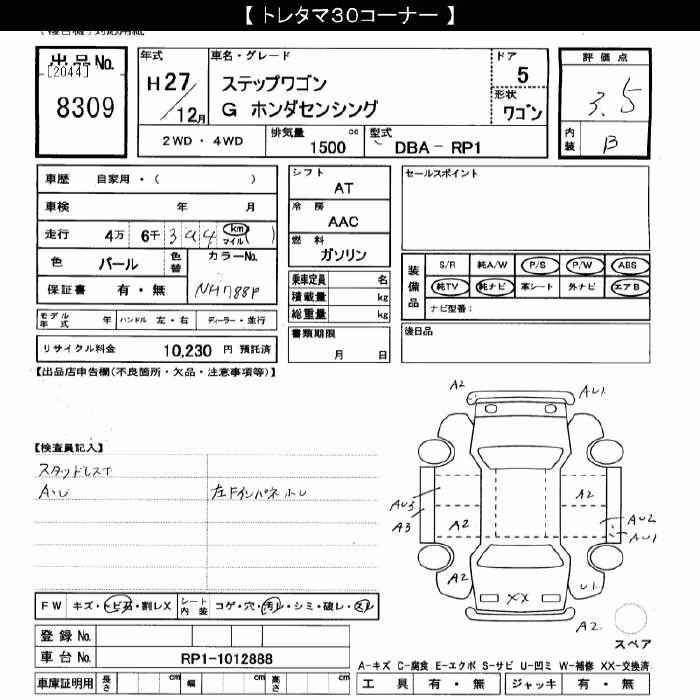 【 トレタマ30コーナー 】
出品No.
[2044]
8309
年式
H27
12月
車名・グレード
ステップワゴン
G ホンダセンシング
ドア
5
形状
ワゴン
評価点
3.5
内装
B
2WD・4WD
排気量
1500 cc
型式
DBA- RP1
車歴 自家用・( )
車検 年 月
走行 4万 6千 394 km マイル ( )
色 パール 色替 カラーNo.
NH788P
保証書 有・無
モデル年式 年 ハンドル 左・右 ディーラー・並行
リサイクル料金 10,230 円 預託済
シフト
AT
冷房
AAC
燃料
ガソリン
乗車定員 名
積載量 kg
総重量 kg
書類期限
月 日
セールスポイント
装備品
S/R 純A/W P/S P/W ABS
純TV 純ナビ 革シート 外ナビ エアB
ナビ型番:
後日品
【出品店申告欄(不良箇所・欠品・注意事項等)】
【検査員記入】
スタッドレス
A・U
左Fインパネ
A2
AU1
AU3
A3
A2
A2
AU2
AU1
A2
XX
U1
A2
スペア
FW キズ・トビ石・割レX
シート内装 コゲ・穴・汚レ・シミ・破レ・スレ
登録No.
車台No. RP1-1012888
車庫証明用 長さ cm 幅 cm 高さ cm
A-キズ C-腐食 E-エクボ S-サビ U-凹ミ W-補修 XX-交換済
工具 有・無 ジャッキ 有・無